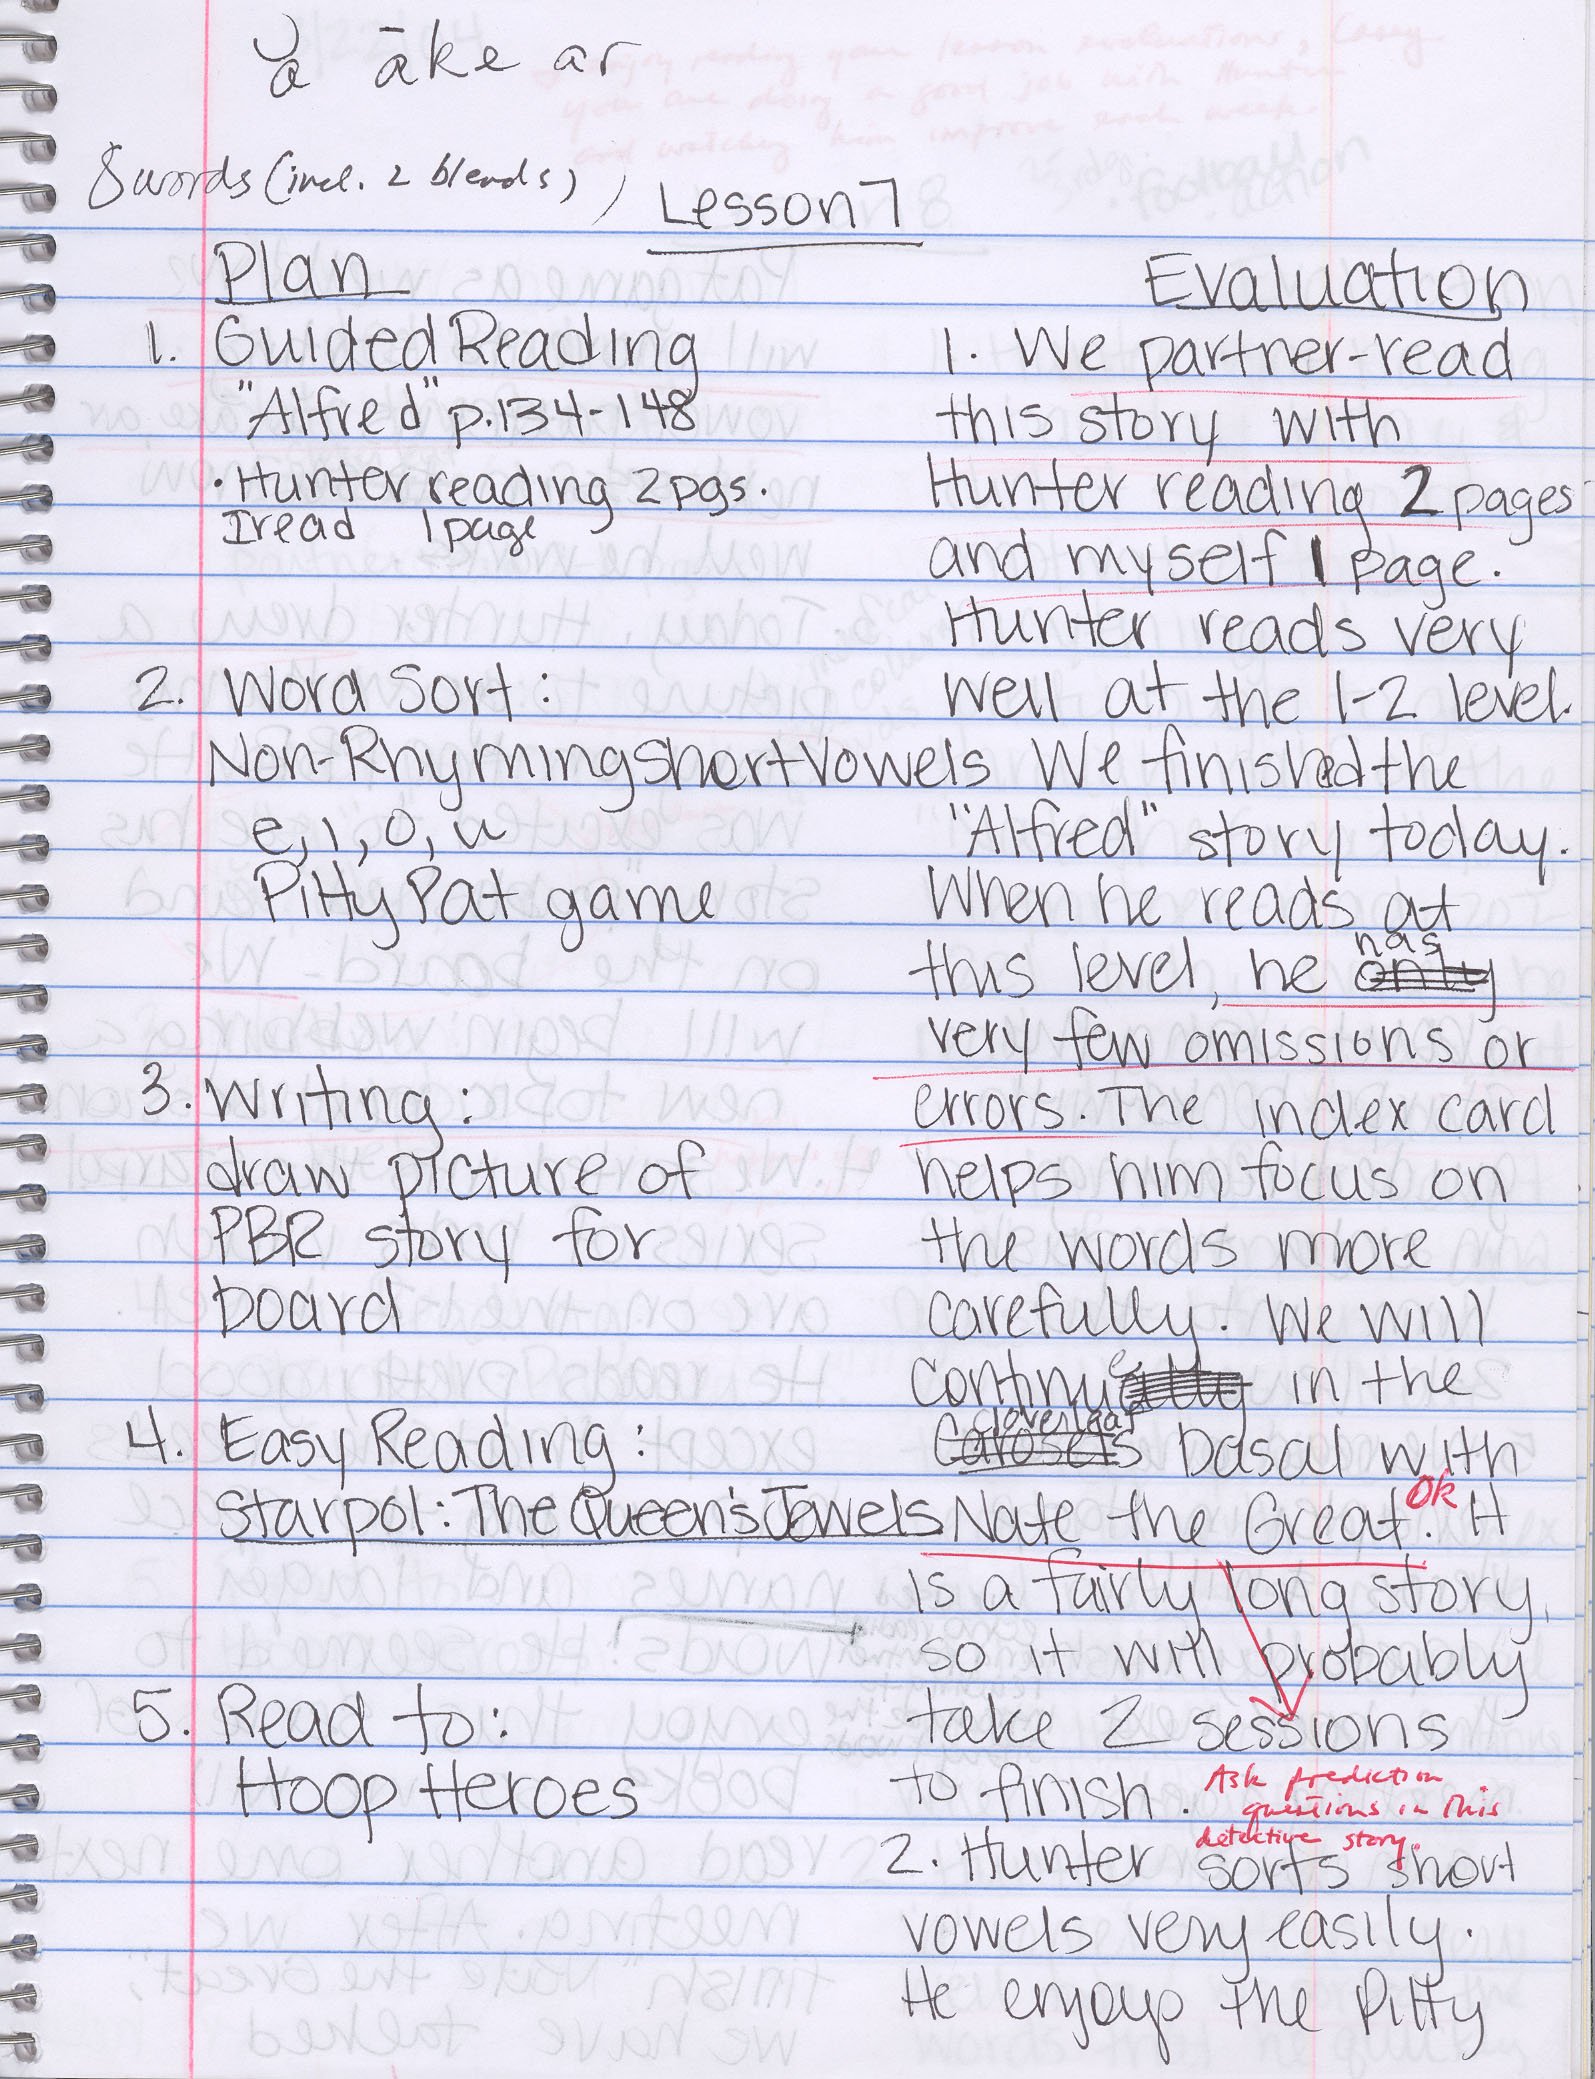 ă āke ar
8 words (incl. 2 blends)
Lesson 7
Plan
1. Guided Reading
"Alfred" p.134-148
• Hunter reading 2 pgs.
I read 1 page
2. Word Sort:
Non-Rhyming Short Vowels
e, i, o, u
Pitty Pat game
3. Writing:
draw picture of
PBR story for
board
4. Easy Reading:
Starpol: The Queen's Jewels
5. Read to:
Hoop Heroes
Evaluation
1. We partner-read
this story with
Hunter reading 2 pages
and myself 1 page.
Hunter reads very
well at the 1-2 level.
We finished the
"Alfred" story today.
When he reads at
this level, he has
very few omissions or
errors. The index card
helps him focus on
the words more
carefully. We will
continue in the
Cloverleaf basal with
Nate the Great. It
Ok
is a fairly long story,
so it will probably
take 2 sessions
to finish.
Ask prediction
questions in this
detective story.
2. Hunter sorts short
vowels very easily.
He enjoys the Pitty